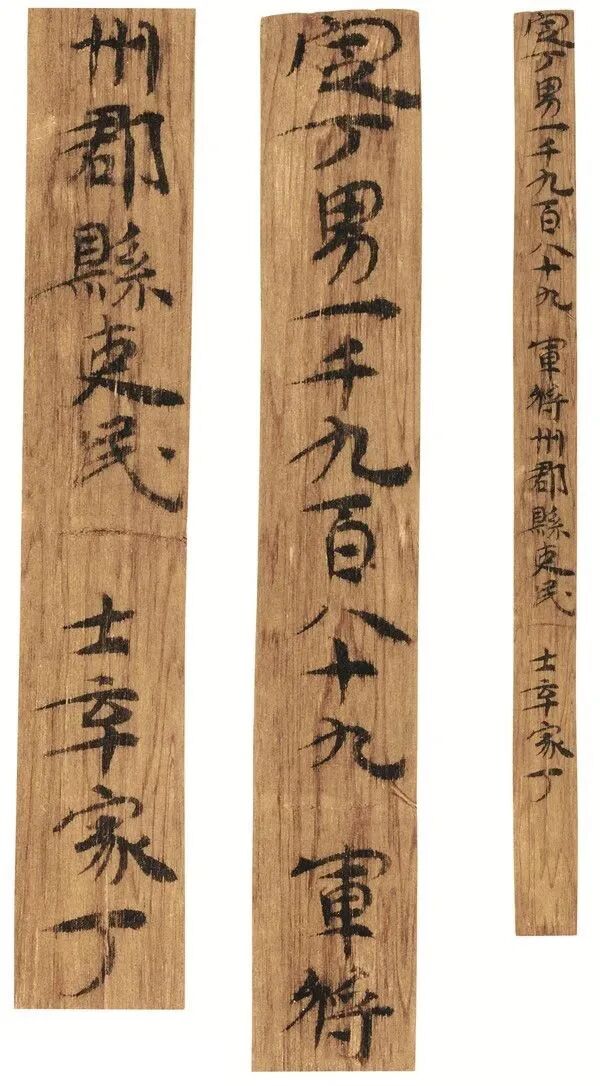 定丁男一千九百八十九 軍將州郡縣吏民 士卒家丁
定丁男一千九百八十九 軍將
州郡縣吏民 士卒家丁